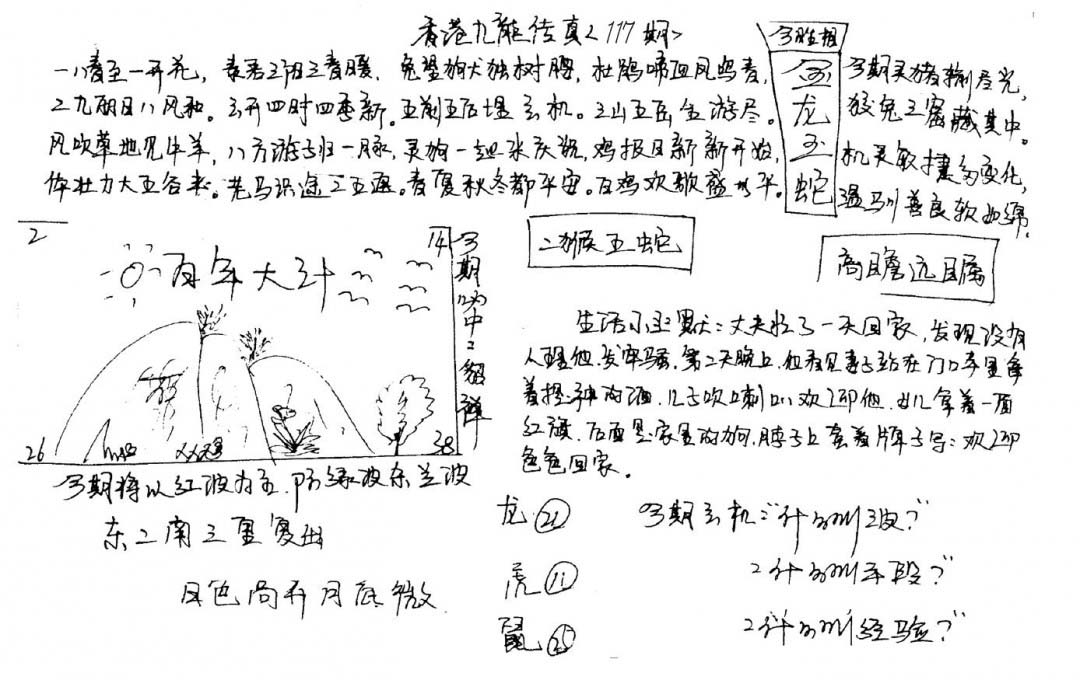 香港九龍传真<117期>
一八春至一开花，
兔望狗犬独树腰，杜鹃啼血风鸟青，
二九丽日八风和。三开四时四季新。五湖五后堪玄机。三山五岳全游尽。
风吹草地见牛羊，八方游子归一月来，灵狗一起来庆祝，鸡报日新新开始，
体壮力大五谷来。老马识途二五通。春夏秋冬都平安。百鸡欢歌盛水平。
今期生相
金
龙
玉
蛇
今期灵猪捌尽光，
狡兔三窟藏其中。
机灵敏捷多变化，
温驯善良软如绵。
2
14
百年大计
26
38
二猴五蛇
高瞻远瞩
生活小幽默：丈夫忙了一天回家，发现没有
人理他，发牢骚，第二天晚上，他看见妻子站在门口手里拿
儿子吹喇叭欢迎他，女儿拿着一面
红旗，后面是家里的狗，脖子上套着牌子写：欢迎
爸爸回家。
今期将以红波为主，防绿波杀兰波
东二南三重复出
日色尚开月底微
龙 ㉑
虎 ⑪
鼠 ㉕
今期玄机：“什么叫波？”
“什么叫手段？”
“什么叫经验？”